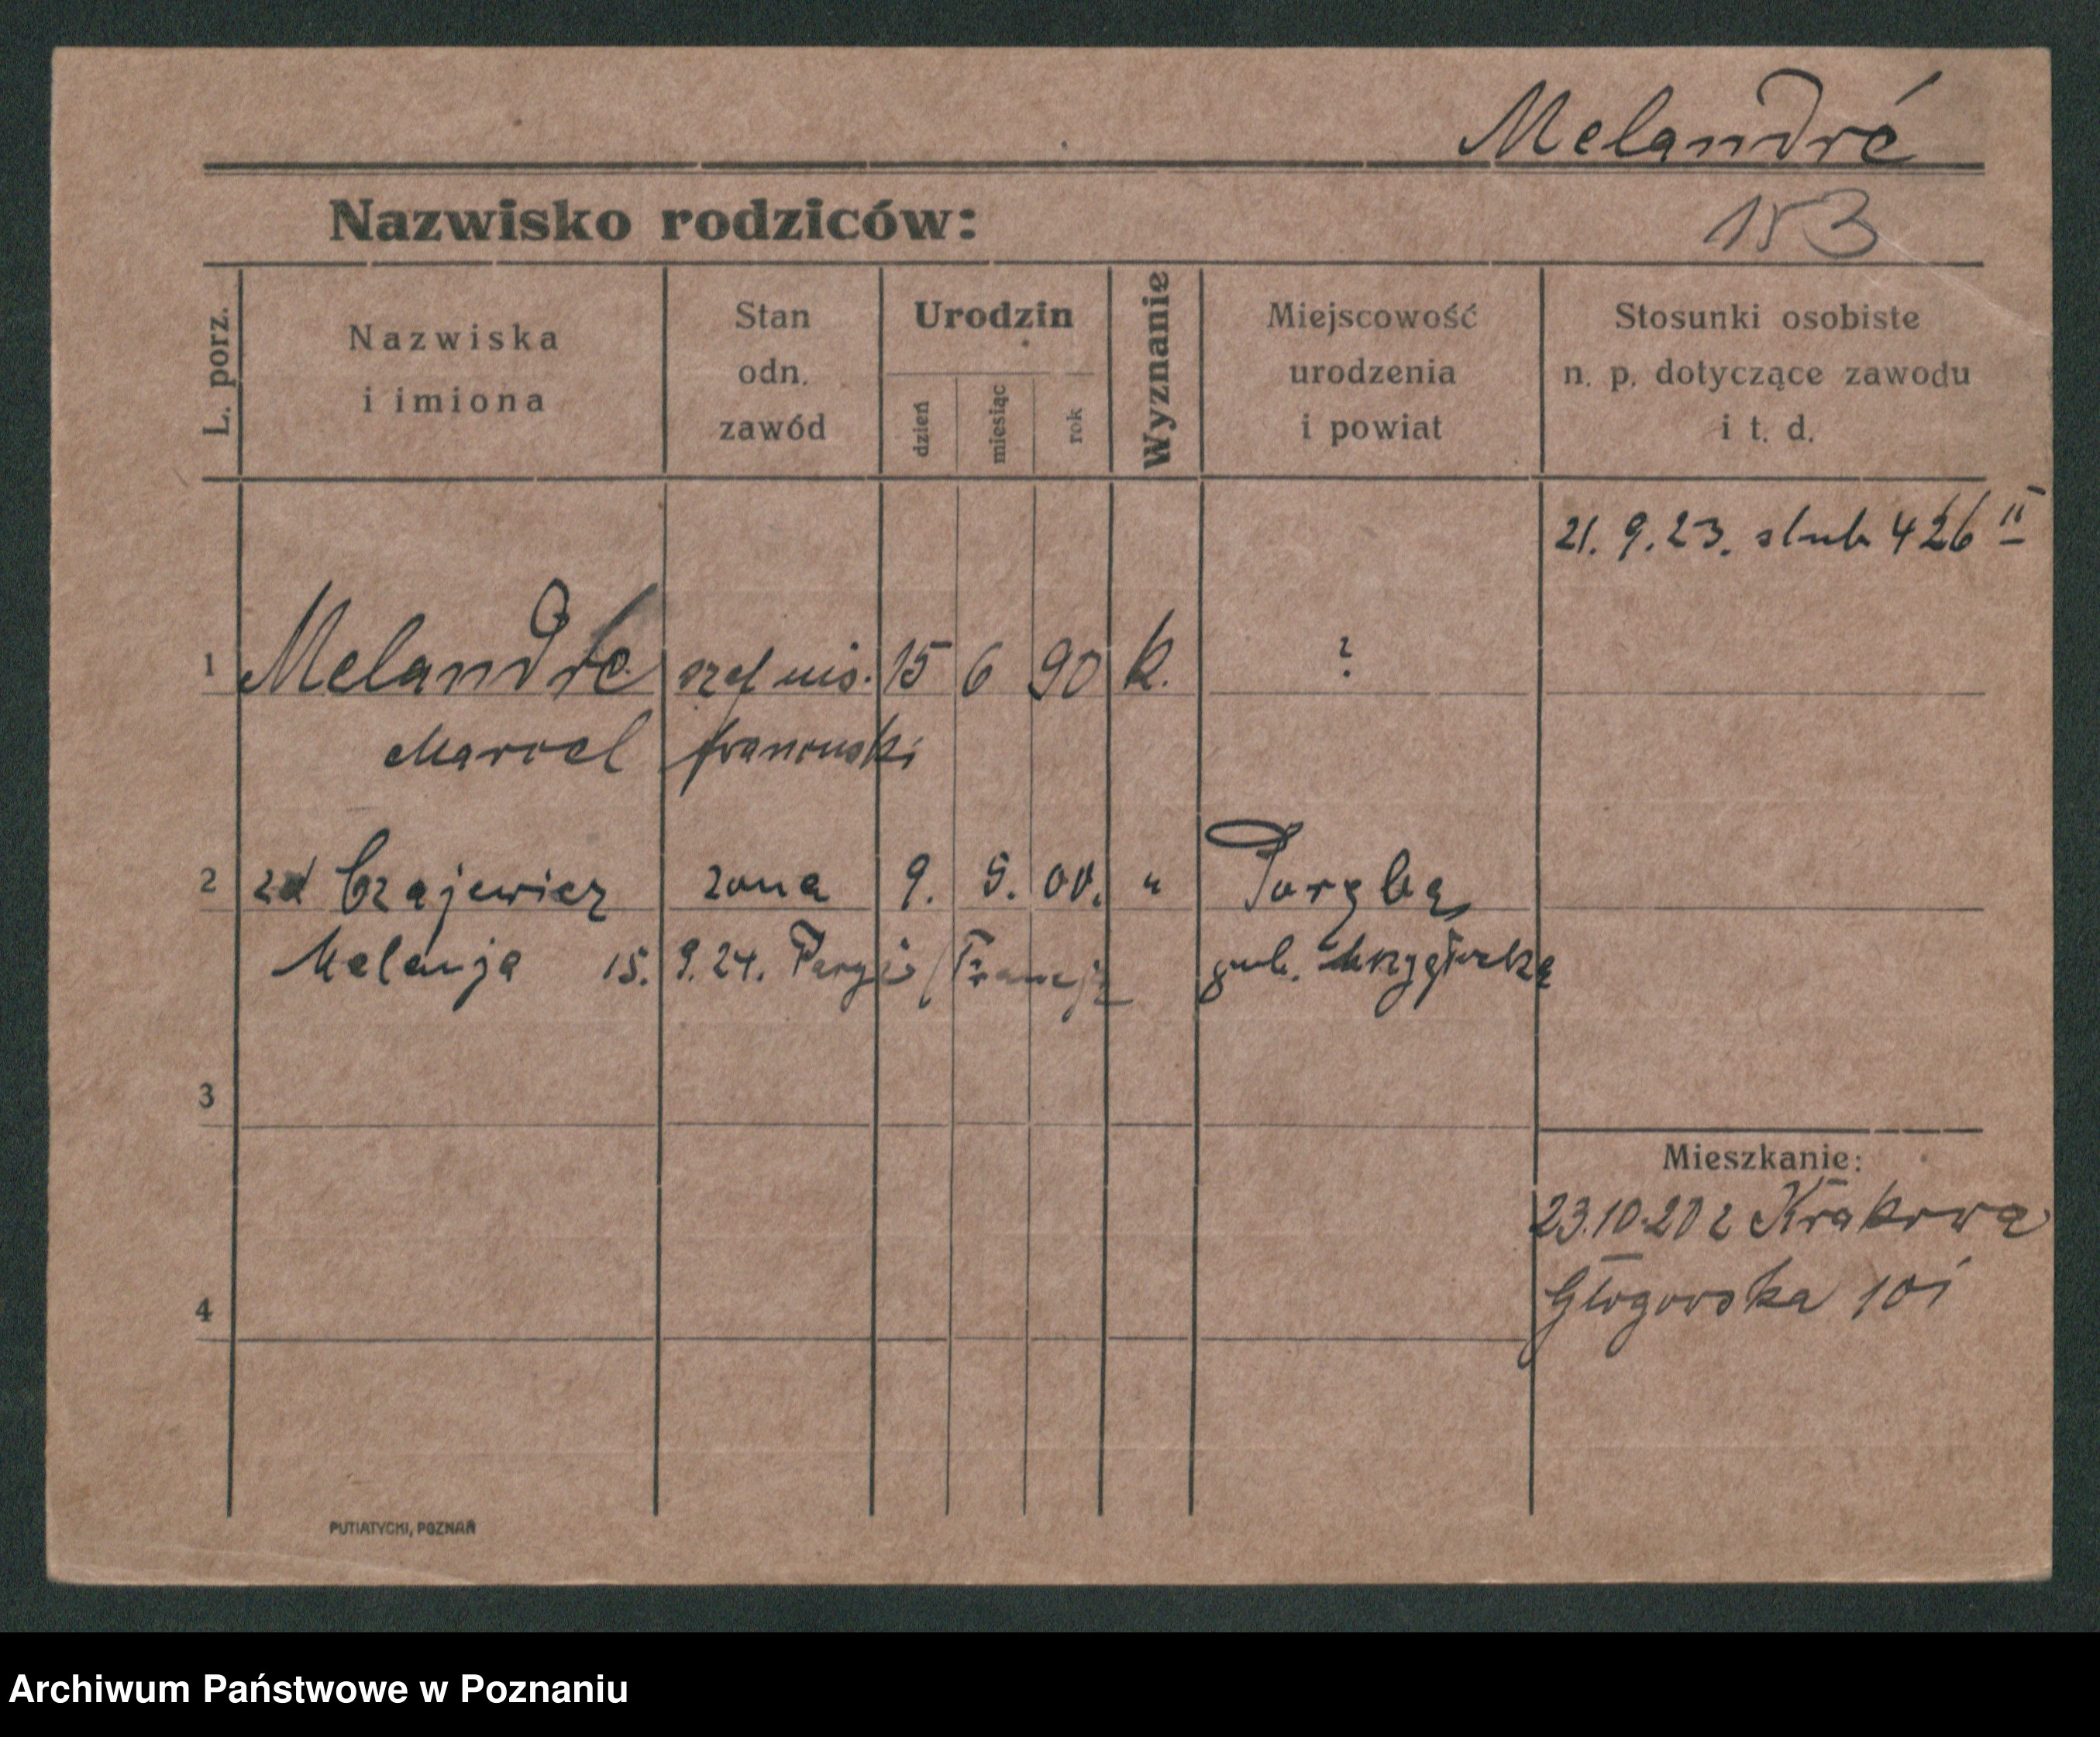 Melandré
Nazwisko rodziców:
153
L. porz.
Nazwiska
i imiona
Stan
odn.
zawód
Urodzin
dzień
miesiąc
rok
Wyznanie
Miejscowość
urodzenia
i powiat
Stosunki osobiste
n. p. dotyczące zawodu
i t. d.
21. 9. 23. slub 426 II
1 Melandré szef mis. 15 6 90 k. ?
Marcel francuski
2 zd Czajewicz zona 9. 5. 00. " Poręba
Melanja 15. 9. 24. Paryż (Francja
gub.
3
Mieszkanie:
23.10.20 z Krakowa
Głogowska 101
4
PUTIATYCKI, POZNAŃ
Archiwum Państwowe w Poznaniu